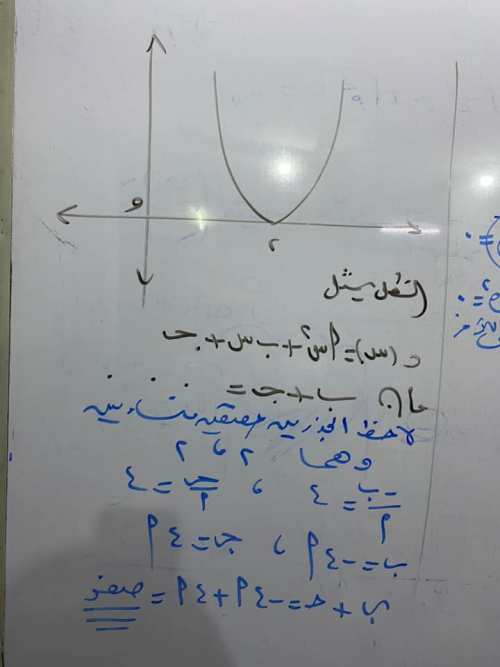 و
٢
الشكل يمثل
د (س) = ٢س² + ب س + جـ
فإن ب + جـ =
لاحظ الجذرين حقيقيين متساويين
وهما ٢ ، ٢
-ب/٢ = ٤ ، جـ/٢ = ٤
ب = -٤٢ ، جـ = ٤٢
ب + جـ = -٤٢ + ٤٢ = صفر